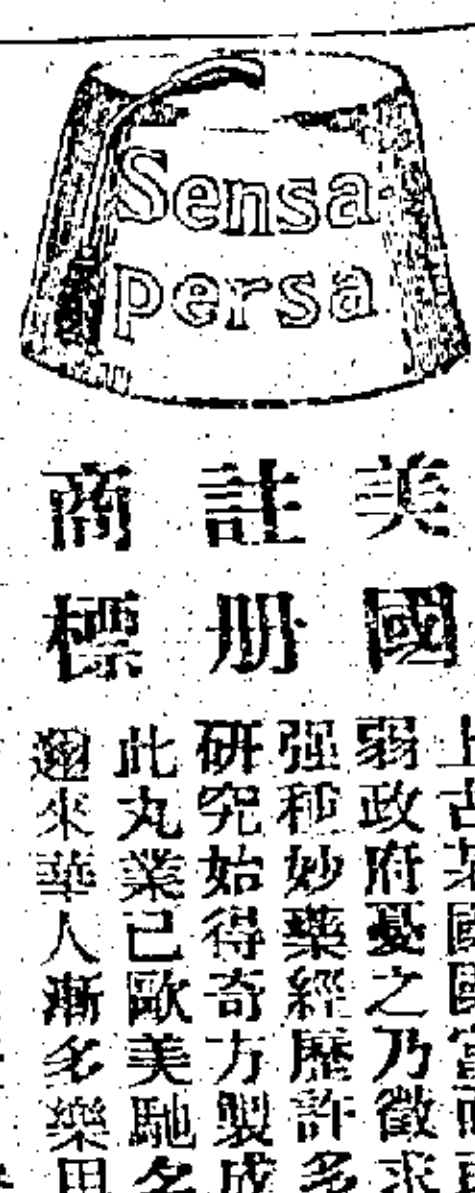 Sensa
persa
美國
註册
商標
弱政府憂之乃徵求
强種妙藥經歷許多
研究始得奇方製成
此丸業已歐美馳名
邇來華人漸多樂用